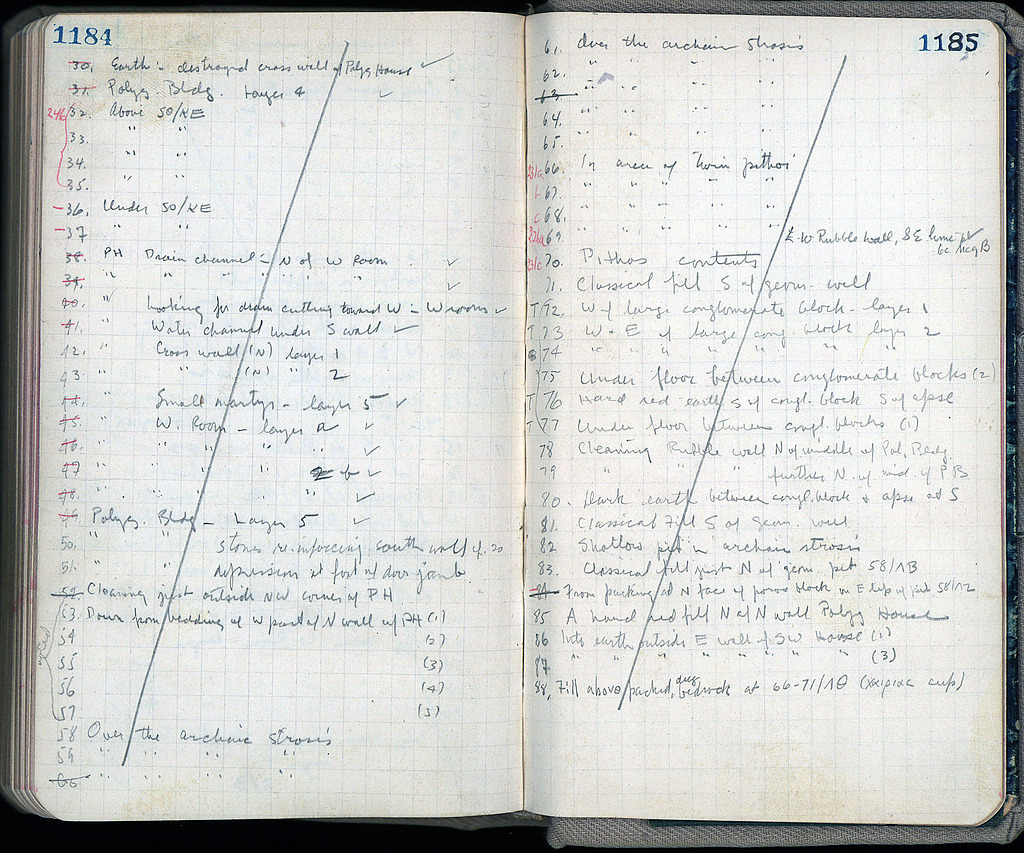 1184
30. Earth - destroyed cross wall of Polyg House ✓
31. Polyg. Bldg. Layer 4 ✓
246 32. Above 50/ΚΕ
33. " "
34. " "
35. " "
36. Under 50/ΚΕ
37 " "
38. PH Drain channel - N of W Room ✓
39. " " " " " ✓
40. " Looking for drain cutting toward W - W room ✓
41. " Water channel under S wall ✓
42. " Cross wall (N) layer 1
43. " " " (N) " 2
44. " Small martys - layer 5 ✓
45. " W. Room - layer a ✓
46. " " " " " ✓
47 " " " " b ✓
48. " " " " ✓
49. Polyg. Bldg - Layer 5 ✓
50. " " stones reinforcing south wall cf. 20
51. " " depression at foot of door jamb
52 Cleaning just outside NW corner of PH
53. Down from bedding of W part of N wall of PH (1)
54 (2)
55 (3)
56 (4)
57 (5)
58 Over the archaic strosis
59 " " " "
60 " " " "
1185
61. Over the archaic strosis
62. " " " "
63. " " " "
64. " " " "
65. " " " "
231a 66. In area of Twin pithoi
b 67. " " " " "
c 68. " " " " "
226a 69. E-W Rubble wall, SE lime pit
bc neg B
231c 70. Pithos contents
71. Classical fill S of geom. wall
T 72. W of large conglomerate block - layer 1
T 73 W + E of large cong block layer 2
74 " " " " " " "
75 Under floor between conglomerate blocks (2)
T 76 Hard red earth S of congl. block S of apse
T 77 Under floor between congl. blocks (1)
78 Cleaning Rubble wall N of middle of Pol. Bldg.
79 " " " further N. of mid. of P B
80. Dark earth between congl. block & apse at S
81. Classical Fill S of Geom. well
82 Shallow pit in archaic strosis
83. Classical fill just N of geom. pit 58/ΛΒ
84 From packing at N face of poros block on E lip of pit 58/ΛΖ
85 A hard red fill N of N wall Polyg House
86 Into earth outside E wall of SW House (1)
87 " " " " " " " (3)
88, Fill above packed, dug bedrock at 66-71/ΛΘ (Χαιρίας cup)